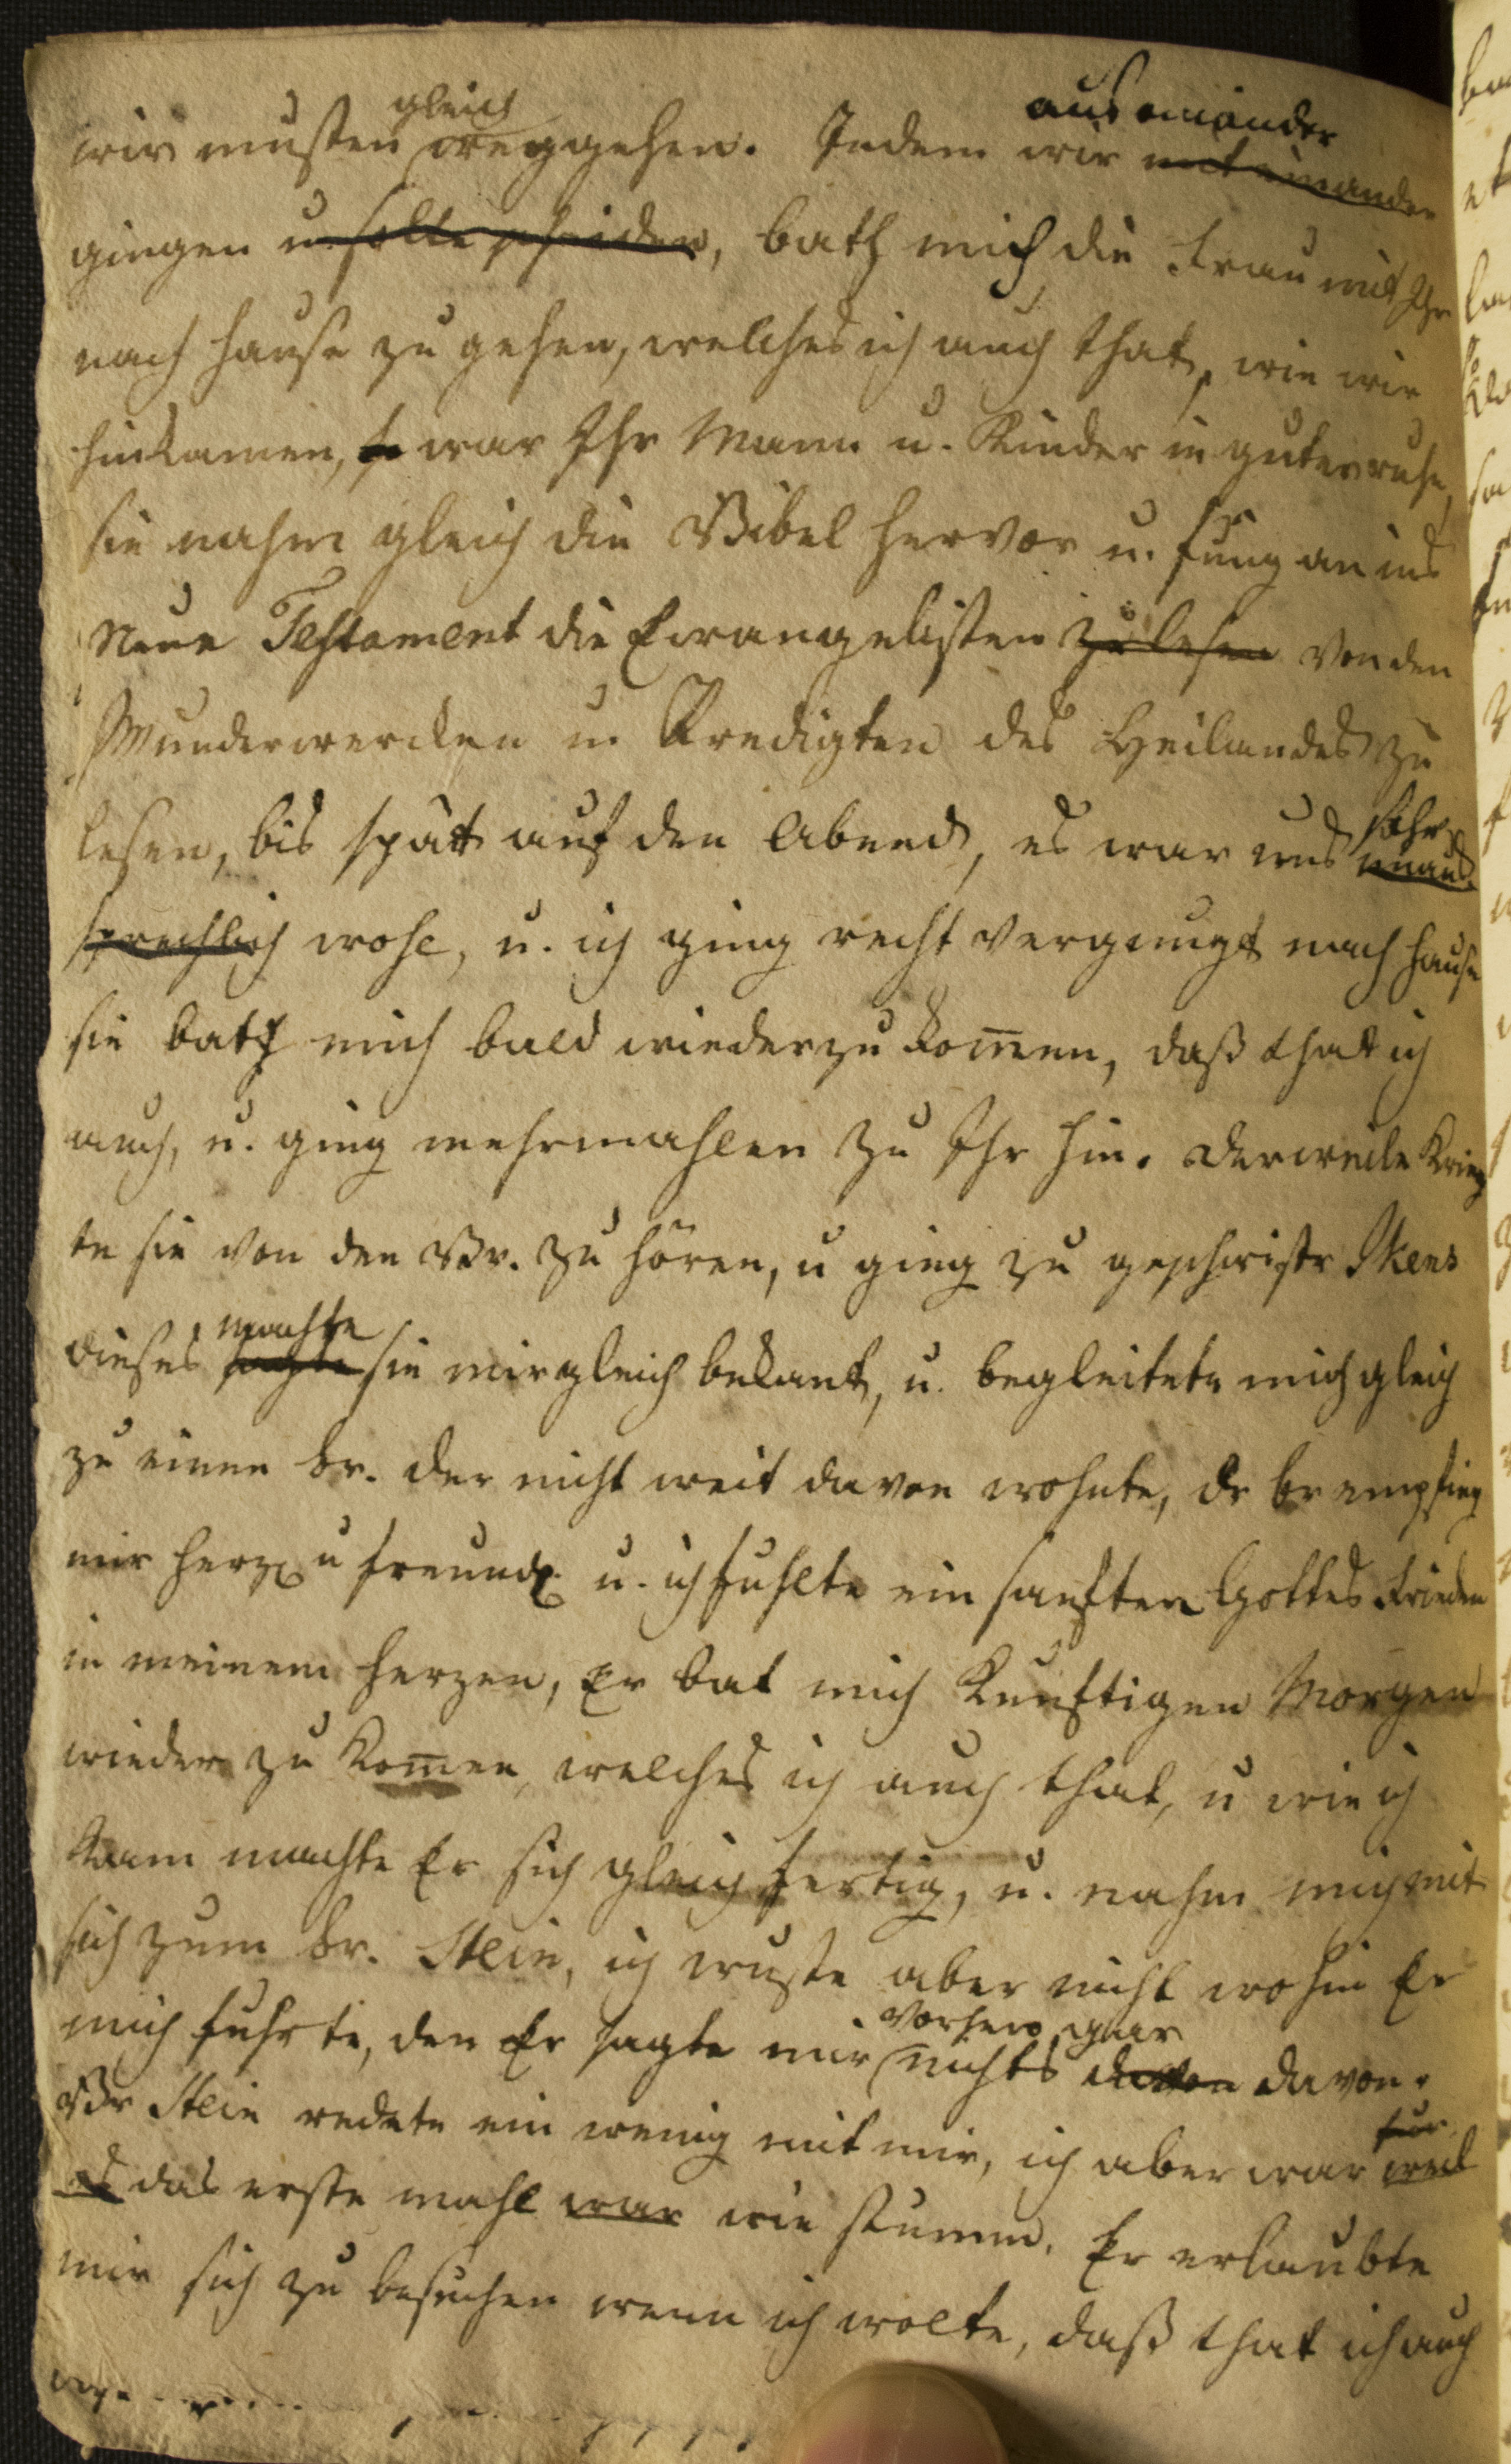 wir musten gleich weggehen. Indem wir mit einander aus einander
gingen u. solte scheiden, bath mich die Frau mit Ihr
nach Hause zu gehen, welches ich auch that, wie wir
hinkamen, so war Ihr Mann u. Kinder in guter ruhe,
sie nahm gleich die Bibel hervor u. fung an ins
Neue Testament die Evangelisten zu lesen von den
Wunderwercken u. Predigten des Heilandes zu
lesen, bis spät auf den Abend, es war uns sehr unaus
sprechlich wohl, u. ich ging recht vergnugt nach Hause
sie bath mich bald wieder zu kom̅en, daß that ich
auch, u. ging mehrmahlen zu Ihr hin. Derweile krieg
te sie von den Br. zu hören, u ging zu geschwistr Ikens
dieses sagte machte sie mir gleich bekant, u. begleitete mich gleich
zu einen br. der nicht weit davon wohnte, dr br empfing
mir herzl u freundl u. ich fuhlte ein sanften Gottes Frieden
in meinem Herzen, Er bat mich Kunftigen Morgen
wieder zu kom̅en, welches ich auch that, u wie ich
kam machte Er sich gleich fertig, u. nahm mich mit
sich zum br. Stein, ich wuste aber nicht wohin Er
mich fuhrte, den Er sagte mir vorhero gar nichts davon davon.
Br Stein redete ein wenig mit mir, ich aber war fur weil
es das erste mahl war wie stumm. Er erlaubte
mir sich zu besuchen wenn ich wolte, daß that ich auch